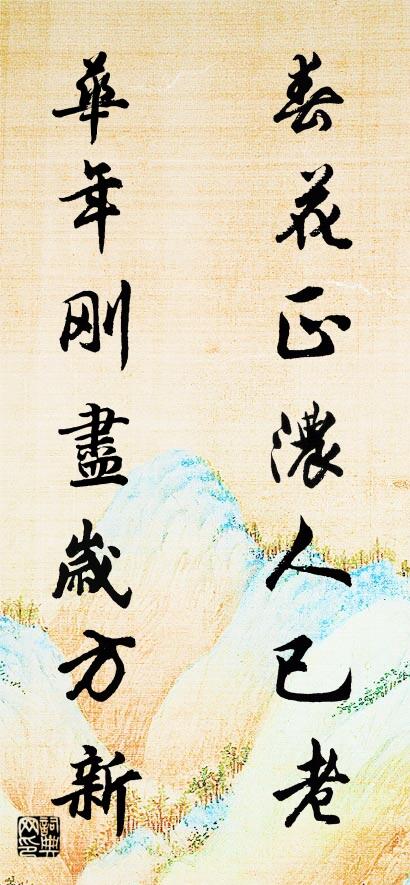 春花正濃人已老
華年刚盡歲方新
詞典网印